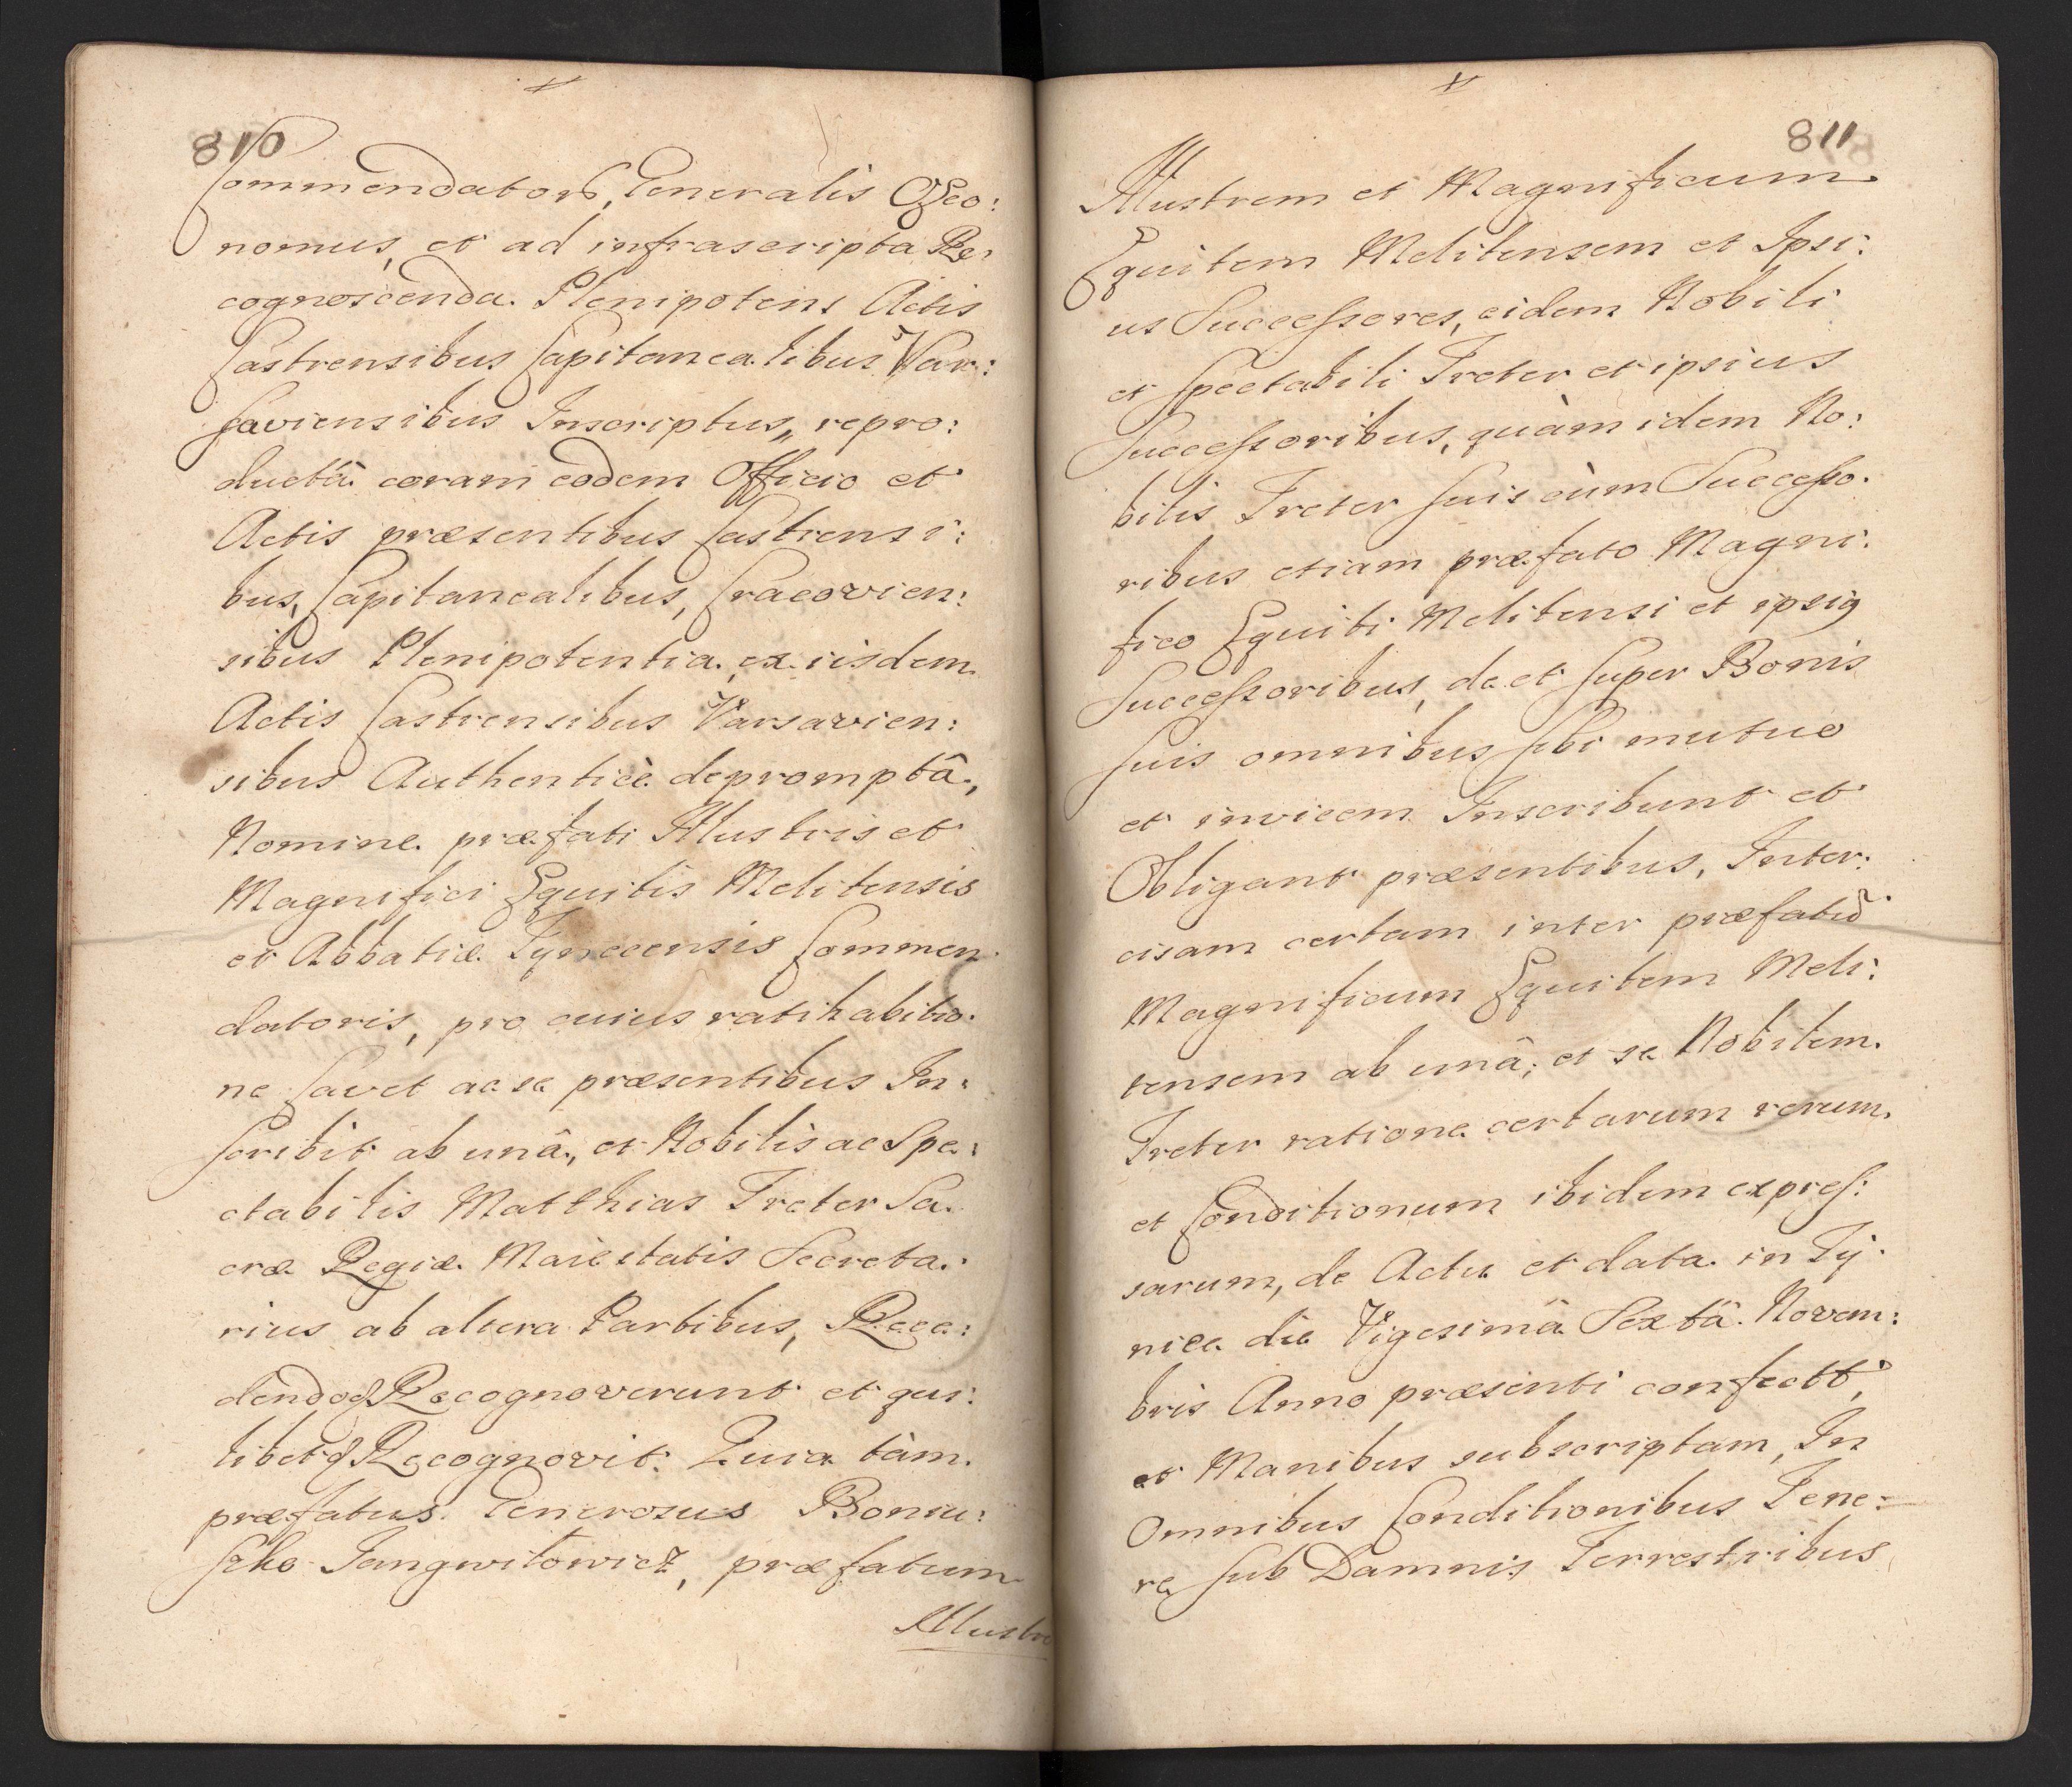 810
Commendatoris, Generalis Oeco:
nomus, et ad infrascripta Re:
cognoscenda Plenipotens Actis
Castrensibus Capitanealibus Var:
saviensibus Inscriptus,, repro:
ductâ coram eodem Officio et
Actis præsentibus Castrensi:
bus, Capitanealibus, Cracovien:
sibus Plenipotentia, ex iisdem
Actis Castrensibus Varsavien:
sibus Authenticè depromptâ,
Nomine præfati Illustris et
Magnifici Equitis Melitensis
et Abbatiæ Tynecensis Commen:
datoris, pro cuius ratihabitio:
ne Cavet ac se præsentibus In:
scribit ab unâ, et Nobilis ac Spe:
ctabilis Matthias Treter Sa:
cræ Regiæ Maiestatis Secreta:
rius ab altera Partibus, Rece:
dendoq Recognoverunt et qui:
libet q Recognovit. Quia tàm
præfatus Generosus Boniu:
szko Jangwitowicz, præfatum
Illustre
811
Illustrem et Magnificum
Equitem Melitensem et Ipsi:
us Successores, eidem Nobili
et Spectabili Treter et ipsius
Successoribus, quàm idem No:
bilis Treter suis cùm Successo:
ribus etiam præfato Magni:
fico Equiti Melitensi et ipsig
Successoribus, de et super Bonis
suis omnibus sibi mutuo
et invicem Inscribunt et
Obligant præsentibus, Inter:
cisam certam inter præfatũ
Magnificum Equitem Meli:
tensem ab unâ; et se Nobilem
Treter ratione certarum rerum
et Conditionum ibidem expres:
sarum, de Actu et data in Ty:
niec die Vigesimâ Sextâ Novem:
bris Anno præsenti confectt,
et Manibus subscriptam, In
Omnibus Conditionibus Tene:
re sub Damnis Terrestribus